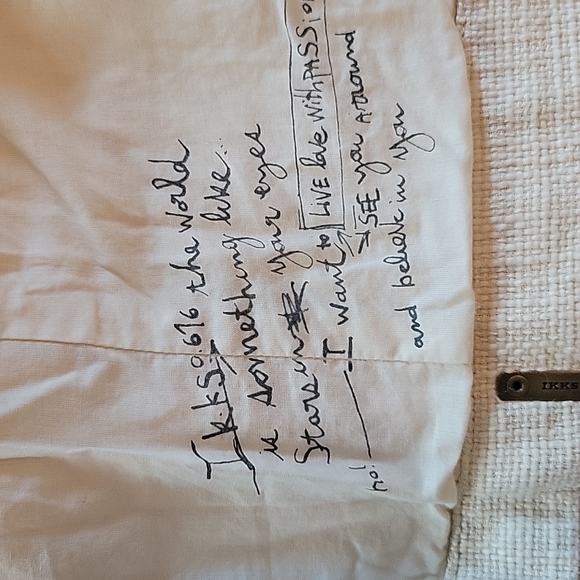 I.K.KS 0.676 the world
is something like...
Stars in your eyes
no! I want to LIVE love with PASSio
SEE you around
and believe in you
IKKS